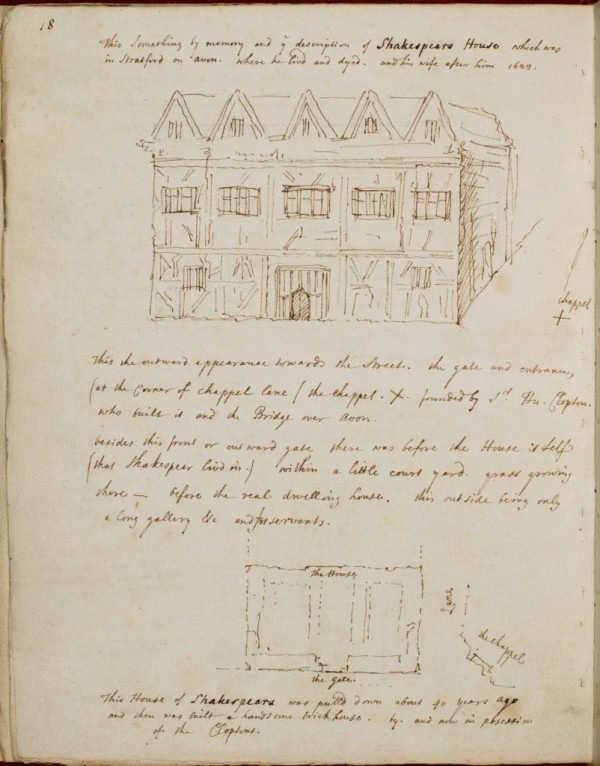 18
This Something by memory and yͤ description of Shakespears House which was
in Stratford on avon. where he livd and dyed. and his wife after him 1623.
chappel
X
This the outward appearance towards the Street. the gate and entrance,
(at the Corner of chappel lane / the chappel. X. founded by Sr. Hu. Clopton.
who built it and the Bridge over Avon.
besides this front or outward gate there was before the House it self
(that Shakespear livd in.) within a little court yard. grass growing
there — before the real dwelling house. this outside being only
a long gallery &c and for servants.
the House
Lane
the chappel
the gate.
This House of Shakespears was pulld down about 40 years ago
and then was built a handsome brick house. by. and now in possession
of the Cloptons.